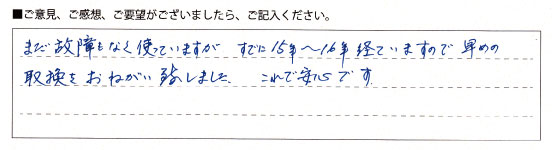 ■ご意見、ご感想、ご要望がございましたら、ご記入ください。
まだ故障もなく使っていますが すでに15年～16年経ていますので 早めの
取換をおねがい致しました。 これで安心です。